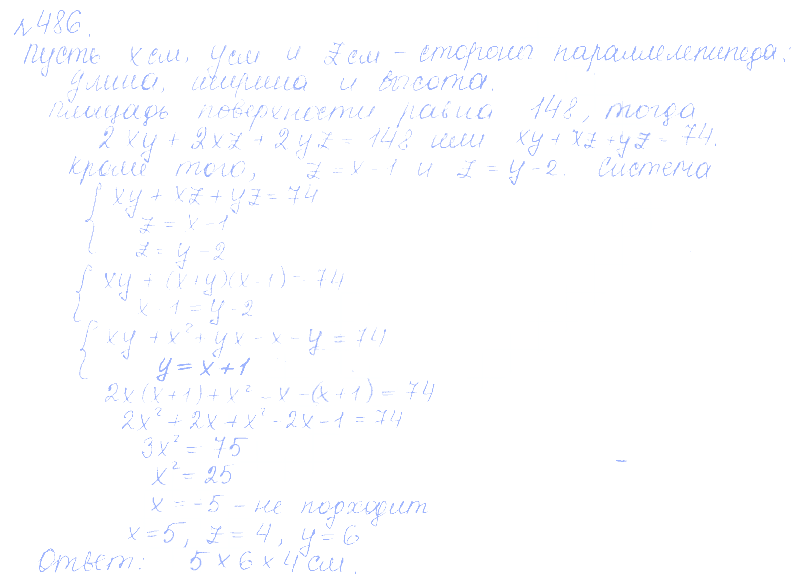 №486.
Пусть x см, y см и z см – стороны параллелепипеда:
длина, ширина и высота.
Площадь поверхности равна 148, тогда
2xy + 2xz + 2yz = 148 или xy + xz + yz = 74.
Кроме того, z = x - 1 и z = y - 2. Система
{ xy + xz + yz = 74
z = x - 1
z = y - 2
{ xy + (x+y)(x-1) = 74
x - 1 = y - 2
{ xy + x² + yx - x - y = 74
y = x + 1
2x(x+1) + x² - x - (x+1) = 74
2x² + 2x + x² - 2x - 1 = 74
3x² = 75
x² = 25
x = -5 – не подходит
x = 5, z = 4, y = 6
Ответ: 5 × 6 × 4 см.